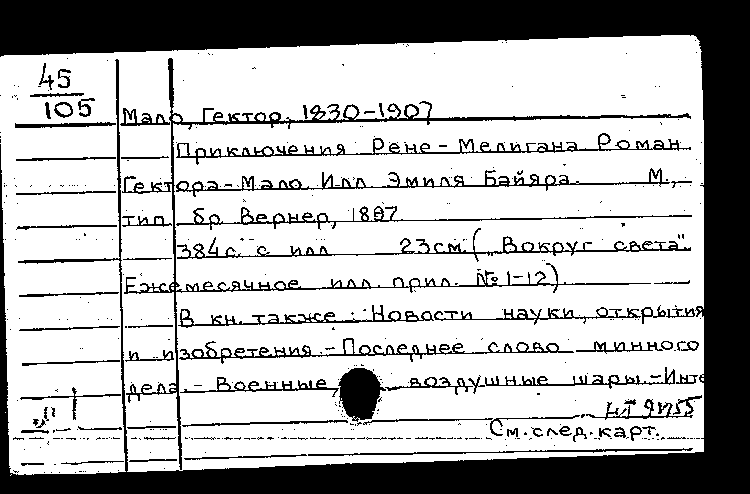 45
105
Мало, Гектор, 1830-1907
Приключения Рене-Мелигана Роман
Гектора-Мало. Илл. Эмиля Байяра. М.,
тип. бр. Вернер, 1887
384с. с илл. 23см. („Вокруг света".
Ежемесячное илл. прил. №1-12).
В кн. также: Новости науки, открытия
и изобретения.-Последнее слово минного
дела.- Военные, воздушные шары.-Инте
См.след.карт.